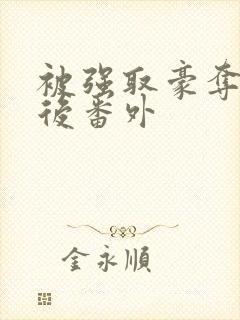 被强取豪夺
後番外
金永順